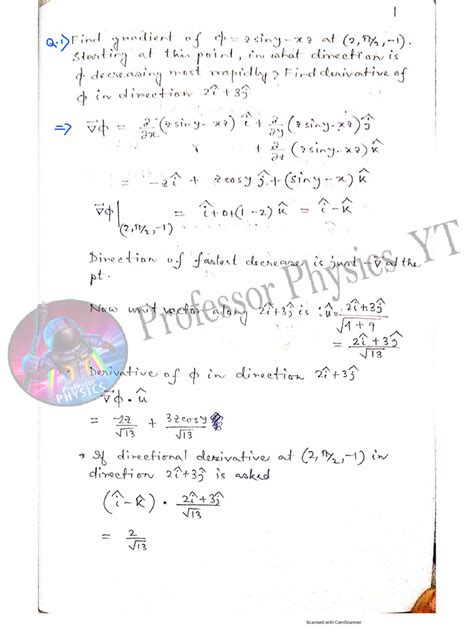 1
Q.1) Find gradient of ϕ = z siny - xz at (2, π/2, -1).
Starting at this point, in what direction is
ϕ decreasing most rapidly? Find derivative of
ϕ in direction 2î + 3ĵ
⇒ ∇⃗ϕ = ∂/∂x (z siny - xz) î + ∂/∂y (z siny - xz) ĵ
+ ∂/∂z (z siny - xz) k̂
= -z î + z cosy ĵ + (siny - x) k̂
∇⃗ϕ|(2, π/2, -1) = î + 0 + (1 - 2) k̂ = î - k̂
Direction of fastest decrease is just -∇⃗ at the
pt.
Now unit vector along 2î + 3ĵ is : û = 2î + 3ĵ / √4 + 9
= 2î + 3ĵ / √13
Derivative of ϕ in direction 2î + 3ĵ
∇⃗ϕ · û
= -2z/√13 + 3z cosy/√13
* If directional derivative at (2, π/2, -1) in
direction 2î + 3ĵ is asked
(î - k̂) · 2î + 3ĵ / √13
= 2/√13
Professor Physics YT
PROFESSOR
PHYSICS
Scanned with CamScanner